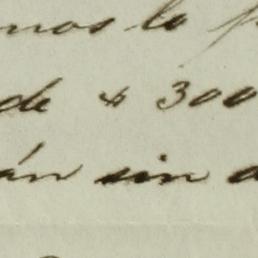 mos lo p
de $ 300
án sin a